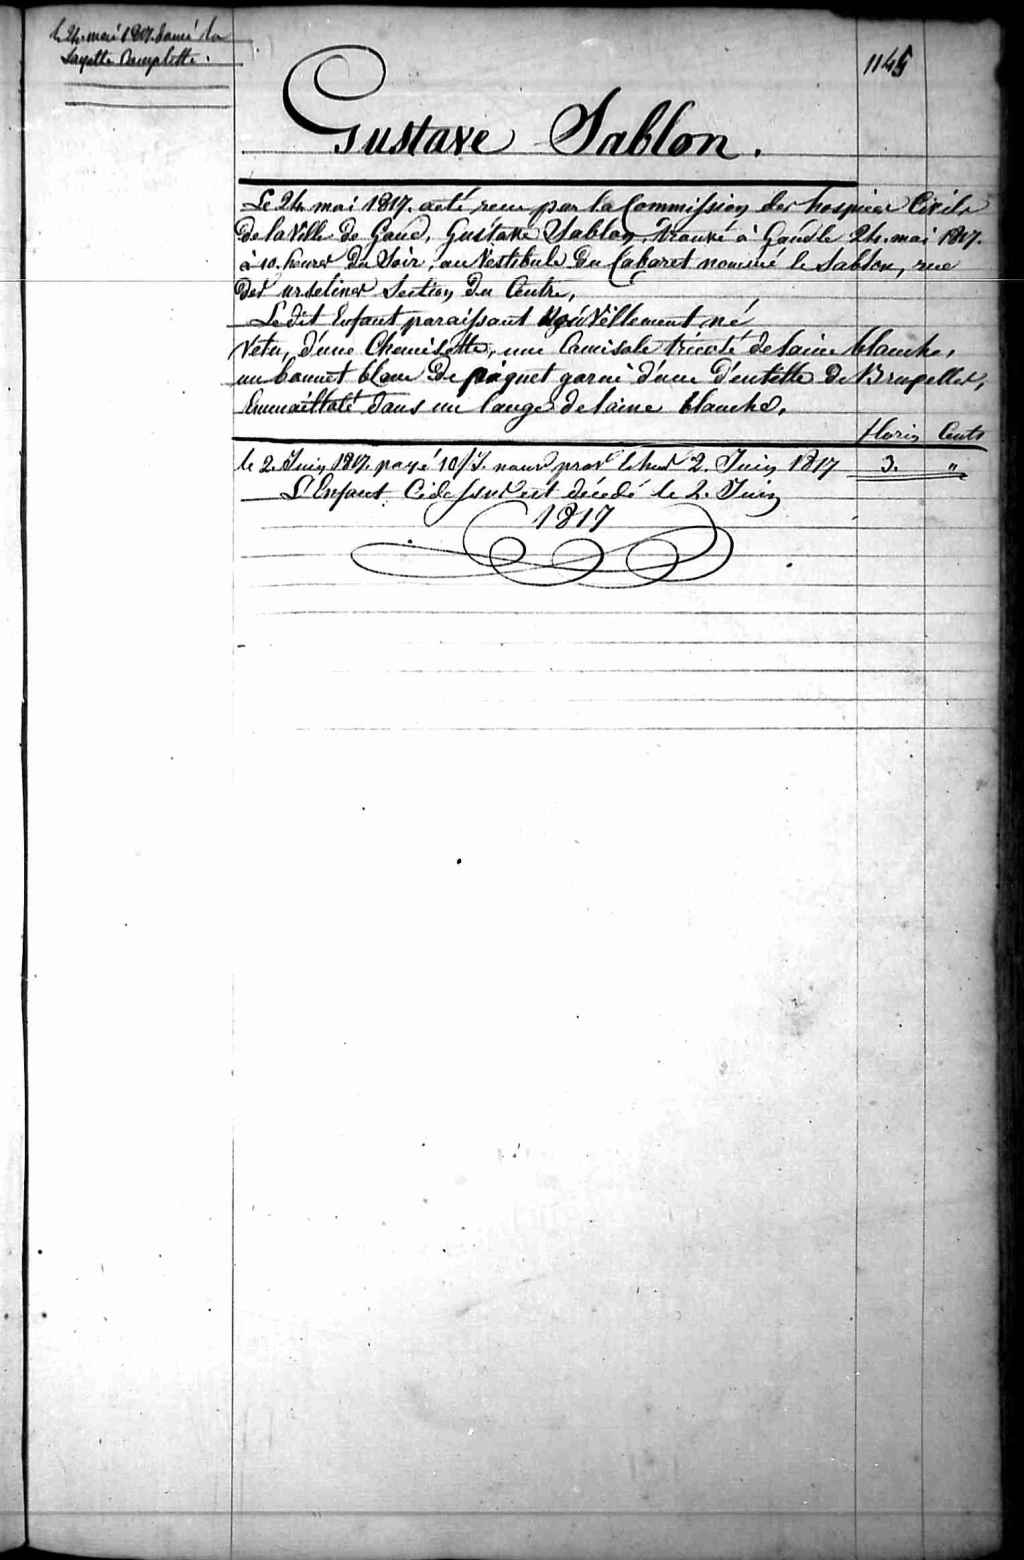 le 24. mai 1817. donné la
Layette Complette.
1145
Gustave Sablon.
Le 24 mai 1817. a été recu par la Commission des hospices Civils
de la Ville de Gand, Gustave Sablon, trouvé à Gand le 24. mai 1817.
à 10. heures du Soir, au Vestibule du Cabaret nommé le Sablon, rue
des urselines Section du Centre,
Le dit Enfant paraissant Nouvellement né
Vetu, d'une Chemisette, une Camisole tricoté de laine blanche,
un bonnet blanc de paquet garni d'une d'entelle de Bruxelles,
Emmailloté dans un lange de laine blanche.
florin Cents
le 2. Juin 1817. payé 10 2. Juin 1817 3. "
L'Enfant Cidessus est décédé le 2. Juin
1817